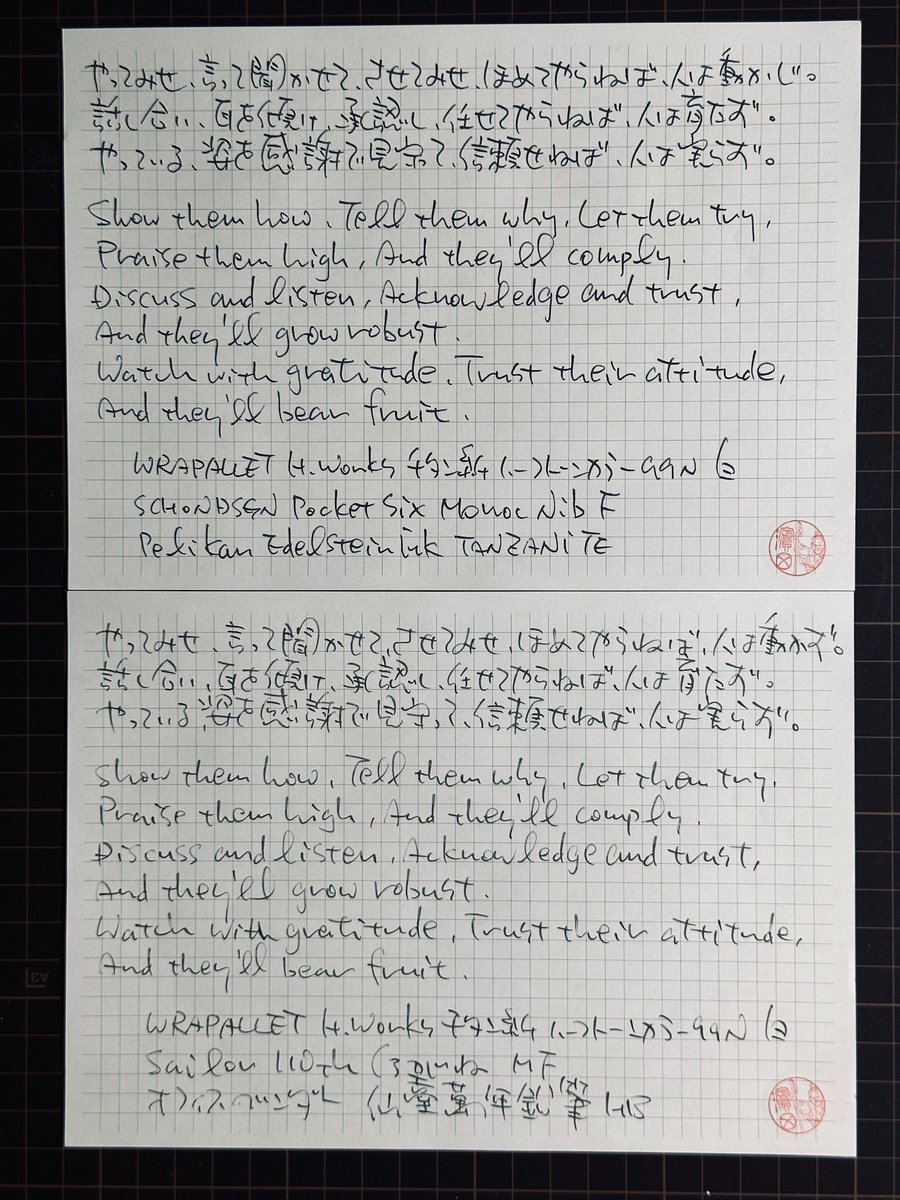 やってみせ、言って聞かせて、させてみせ、ほめてやらねば、人は動かじ。
話し合い、耳を傾け、承認し、任せてやらねば、人は育たず。
やっている、姿を感謝で見守って、信頼せねば、人は実らず。
Show them how, Tell them why, Let them try,
Praise them high, And they'll comply.
Discuss and listen, Acknowledge and trust,
And they'll grow robust.
Watch with gratitude, Trust their attitude,
And they'll bear fruit.
WRAPALLET H.Works
SCHONDSGN Pocket Six Monoc Nib F
Pelikan Edelstein Ink TANZANITE
やってみせ、言って聞かせて、させてみせ、ほめてやらねば、人は動かず。
話し合い、耳を傾け、承認し、任せてやらねば、人は育たず。
やっている姿を感謝で見守って、信頼せねば、人は実らず。
Show them how, Tell them why, Let them try,
Praise them high, And they'll comply.
Discuss and listen, Acknowledge and trust,
And they'll grow robust.
Watch with gratitude, Trust their attitude,
And they'll bear fruit.
WRAPALLET H.Works
Sailor 110th MF
オフィスベンダー 仙臺萬年筆
A3